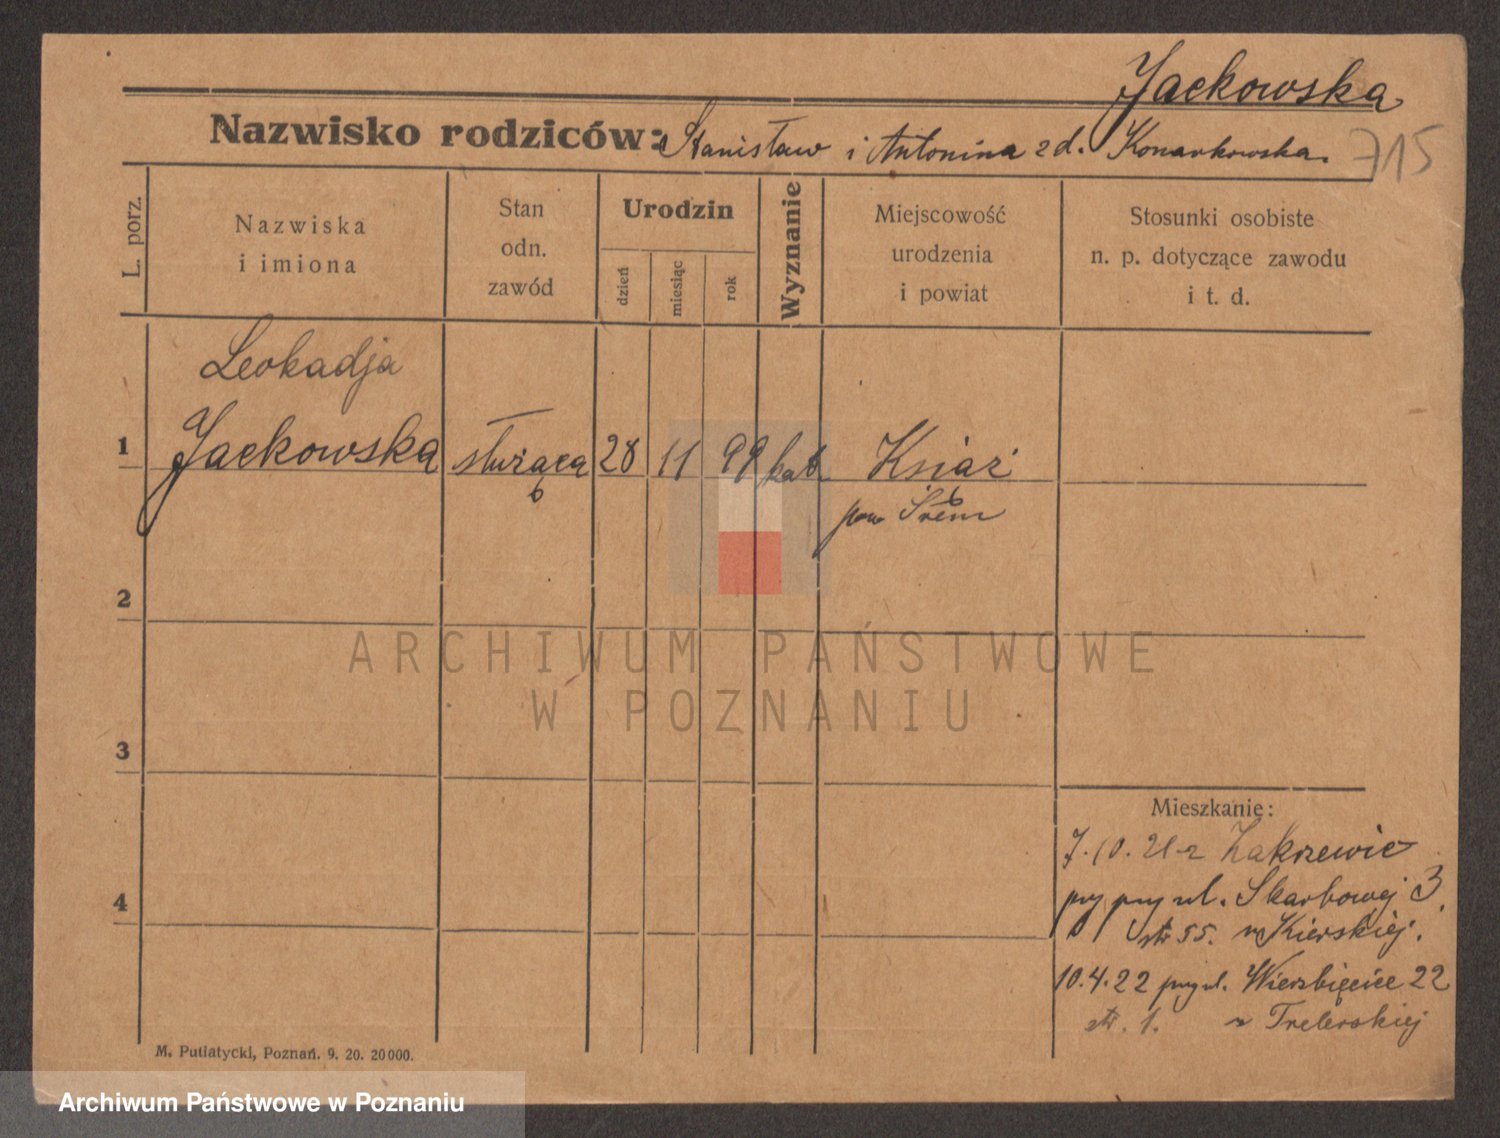 Jackowska
Nazwisko rodziców: Stanisław i Antonina z d. Konarkowska.
715
L. porz.
Nazwiska
i imiona
Stan
odn.
zawód
Urodzin
dzień
miesiąc
rok
Wyznanie
Miejscowość
urodzenia
i powiat
Stosunki osobiste
n. p. dotyczące zawodu
i t. d.
Leokadja
1 Jackowska służąca 28 11 99 kat Książ
pow Śrem
2
ARCHIWUM PAŃSTWOWE
W POZNANIU
3
Mieszkanie:
7.10.21 z Zakrzewie
przy ul. Skarbowej 3
str 55. Kierskiej.
4
10.4.22 przy ul. Wierzbięcice 22
str. 1. Trelerskiej
M. Putiatycki, Poznań. 9. 20. 20000.
Archiwum Państwowe w Poznaniu